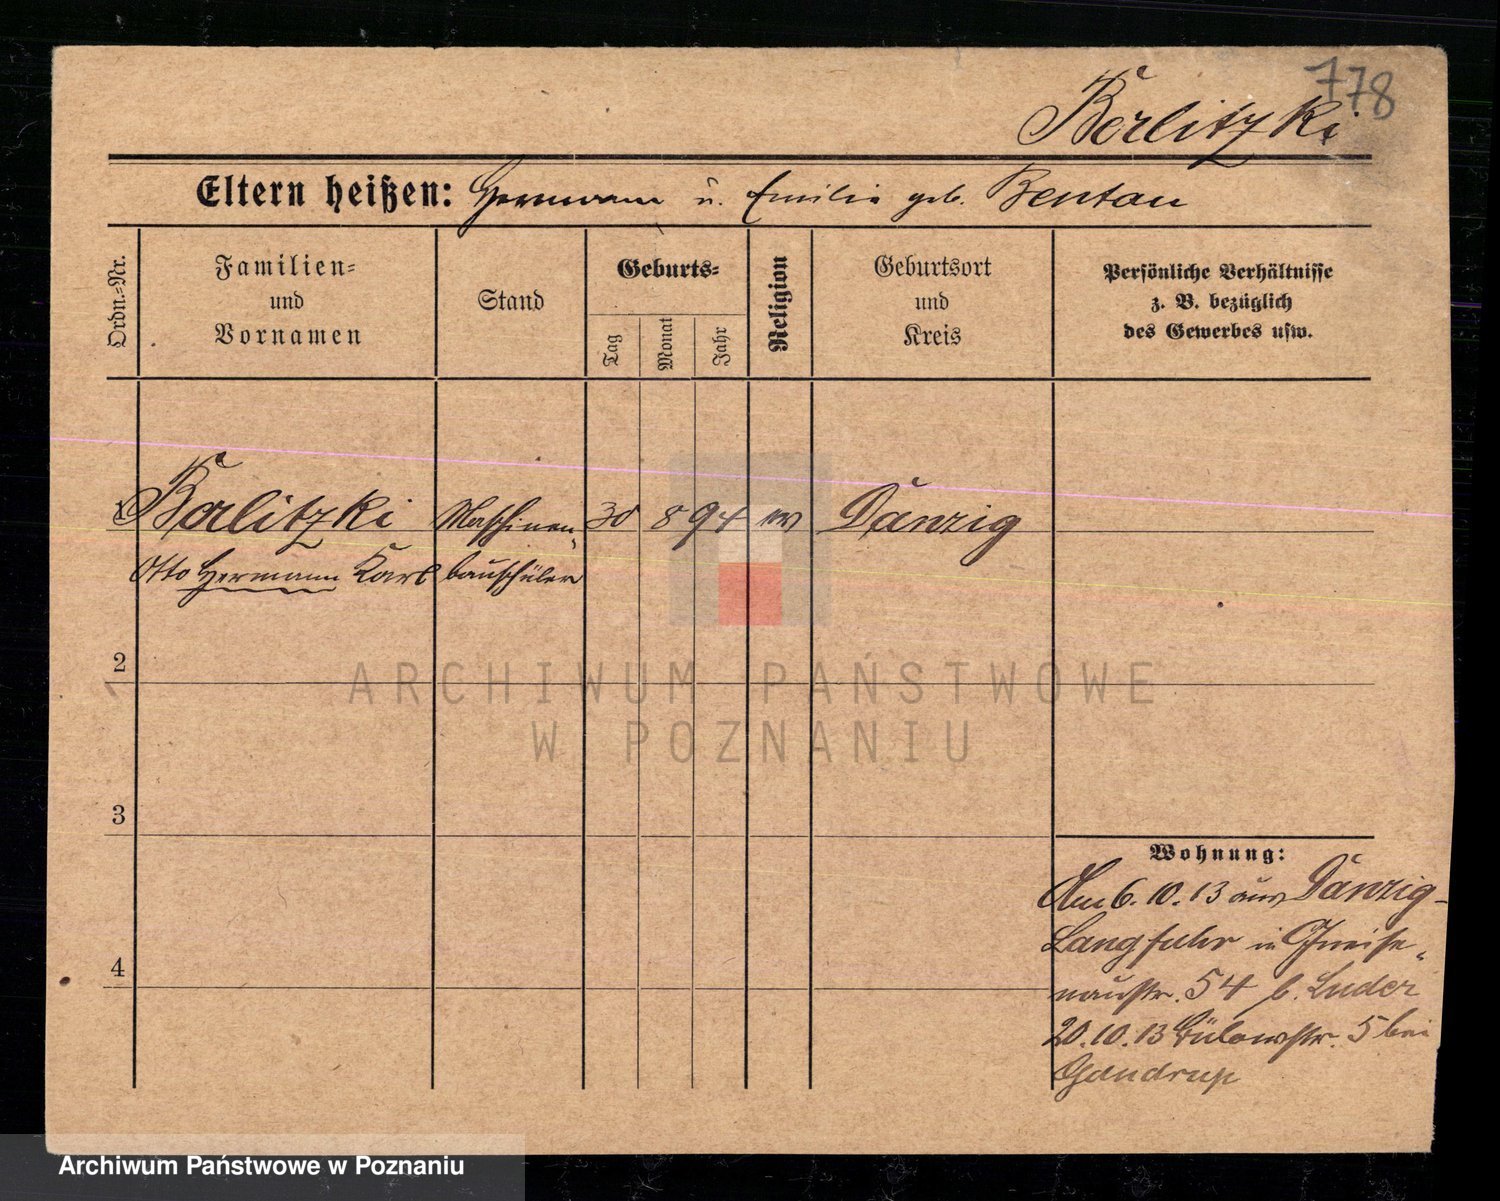 778
Berlitzki
Eltern heißen: Hermann u. Emilie geb. Bentau
Ordn.-Nr.
Familien-
und
Vornamen
Stand
Geburts-
Tag
Monat
Jahr
Religion
Geburtsort
und
Kreis
Persönliche Verhältnisse
z. B. bezüglich
des Gewerbes usw.
1 Berlitzki Maschinen- 30 8 94 ev Danzig
Otto Hermann Karl bauschüler
2
3
4
Wohnung:
Am 6.10.13 aus Danzig-
Langfuhr in Gneise-
naustr. 54 b. Luder
20.10.13 Bülowstr. 5 bei
Gandrup
ARCHIWUM PAŃSTWOWE
W POZNANIU
Archiwum Państwowe w Poznaniu